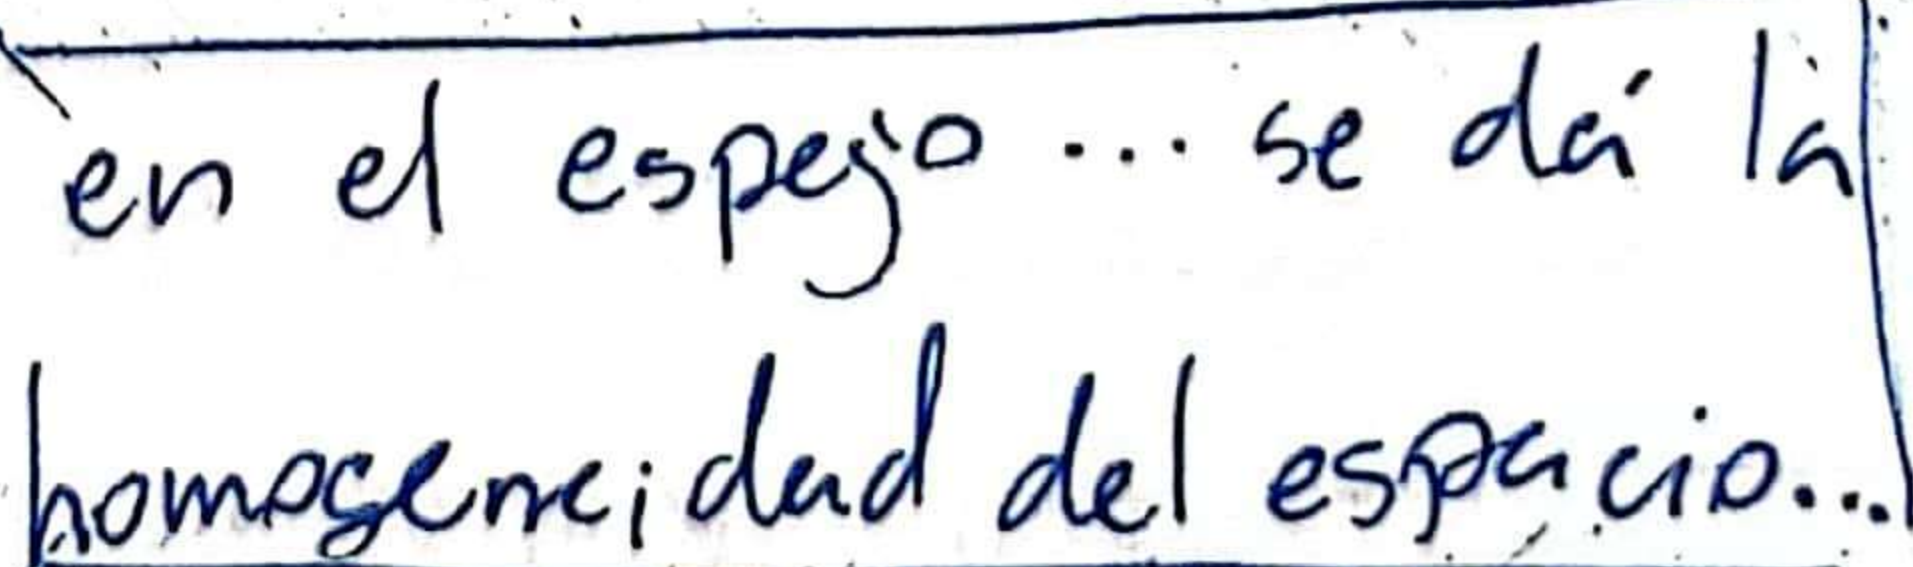 en el espejo ... se dá la
homogeneidad del espacio...